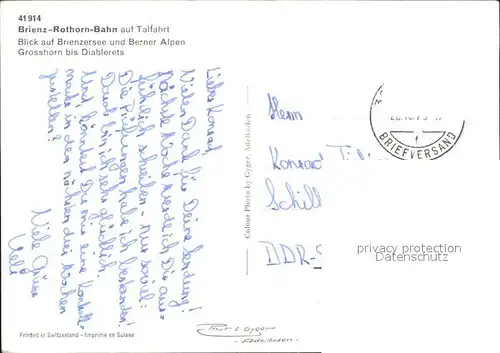 41914
Brienz-Rothorn-Bahn auf Talfahrt
Blick auf Brienzersee und Berner Alpen
Grosshorn bis Diablerets
Lieber Konrad,
Vielen Dank für Deine Sendung!
Nächste Woche werde ich Dir aus-
führlich schreiben - nur soviel:
Die Prüfungen habe ich bestanden!
Darob bin ich sehr glücklich.
Und, könntest Du mir eine Kontakt-
in den nächsten drei Wochen
zustellen?
Viele Grüsse
Ueli
Colour Photo by Gyger, Adelboden
Herrn
Konrad
Schill
DDR-
BRIEFVERSAND
privacy protection
Datenschutz
Printed in Switzerland - Imprimé en Suisse
Gyger
Adelboden